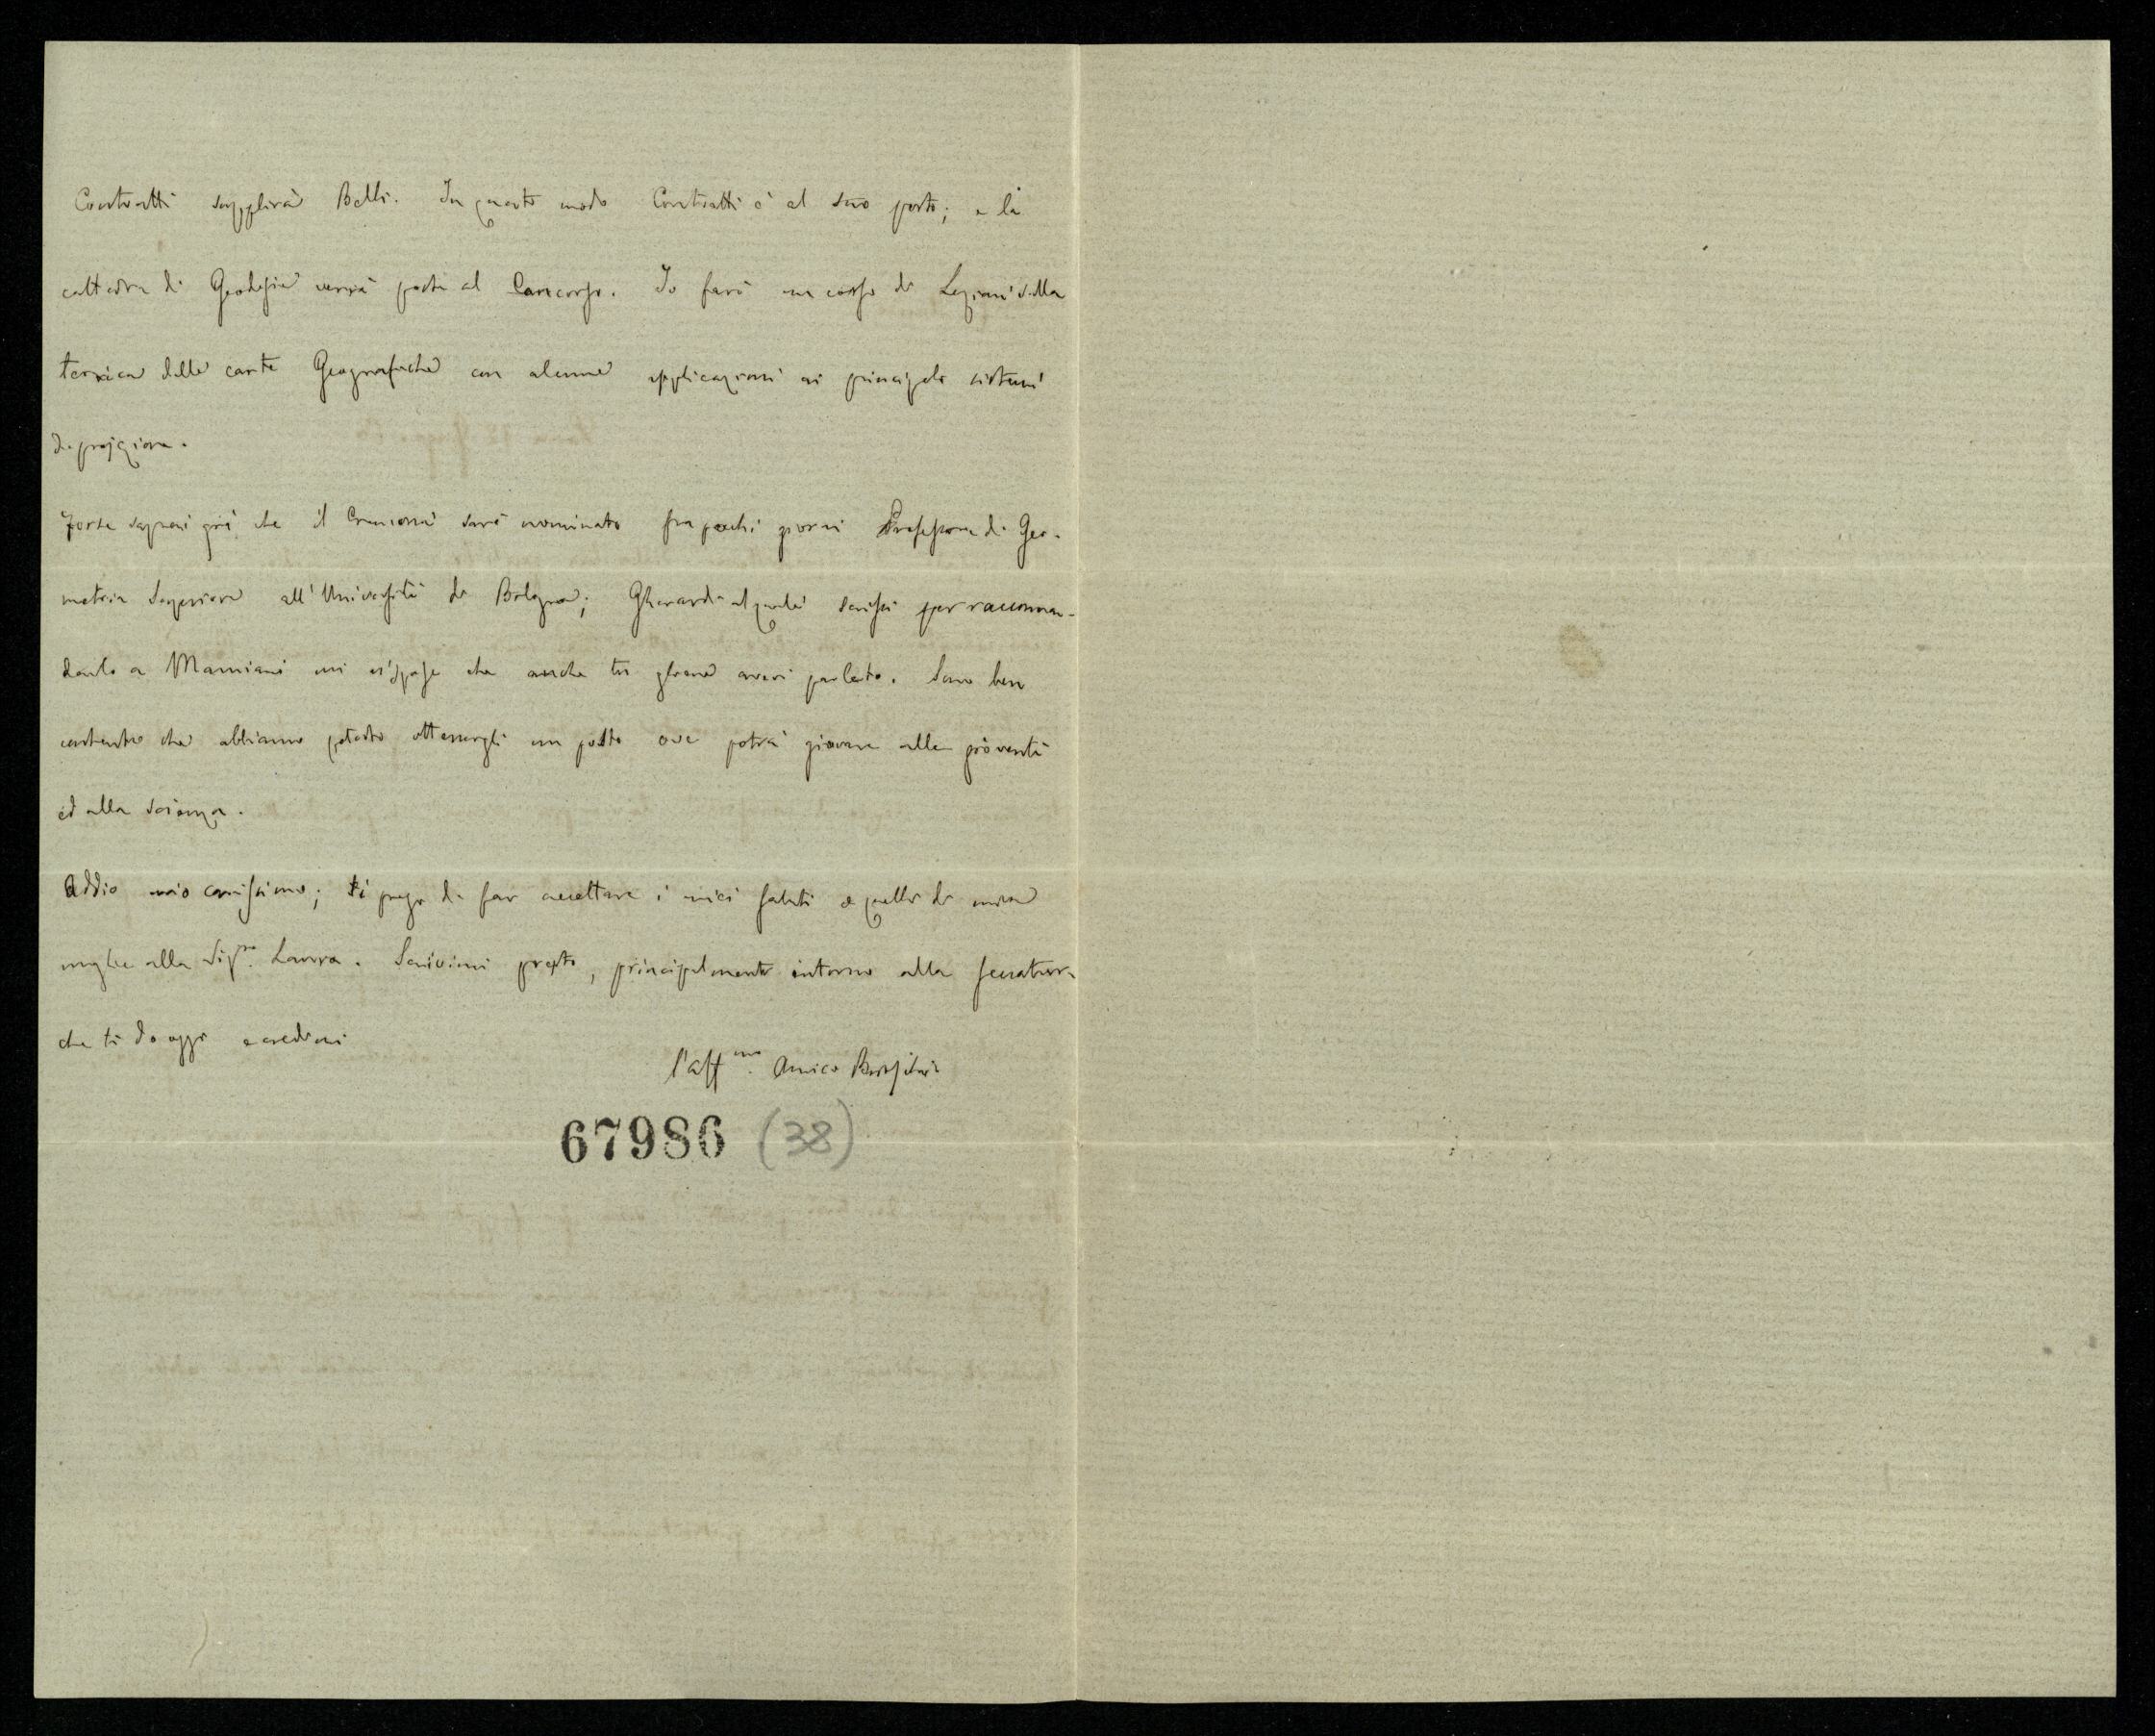 Contratti supplirà Belli. In questo modo Contratti è al suo posto; e la
cattedra di Geodesia verrà posta al Concorso. Io farò un corso di Lezioni sulla
teorica delle carte Geografiche con alcune applicazioni ai principali sistemi
di projezione.
Forse saprai già che il Cremona sarà nominato fra pochi giorni Professore di Geo-
metria Superiore all'Università di Bologna; Gherardi al quale scrissi per raccoman-
darlo a Mamiani mi rispose che anche tu gliene avevi parlato. Sono ben
contento che abbiamo potuto ottenergli un posto ove potrà giovare alla gioventù
ed alla scienza.
Addio mio carissimo; ti prego di far accettare i miei saluti e quelli di mia
moglie alla Sig.ra Laura. Scrivimi presto, principalmente intorno alla
che ti do oggi e credimi
l'aff.mo Amico Brioschi
67986 (38)